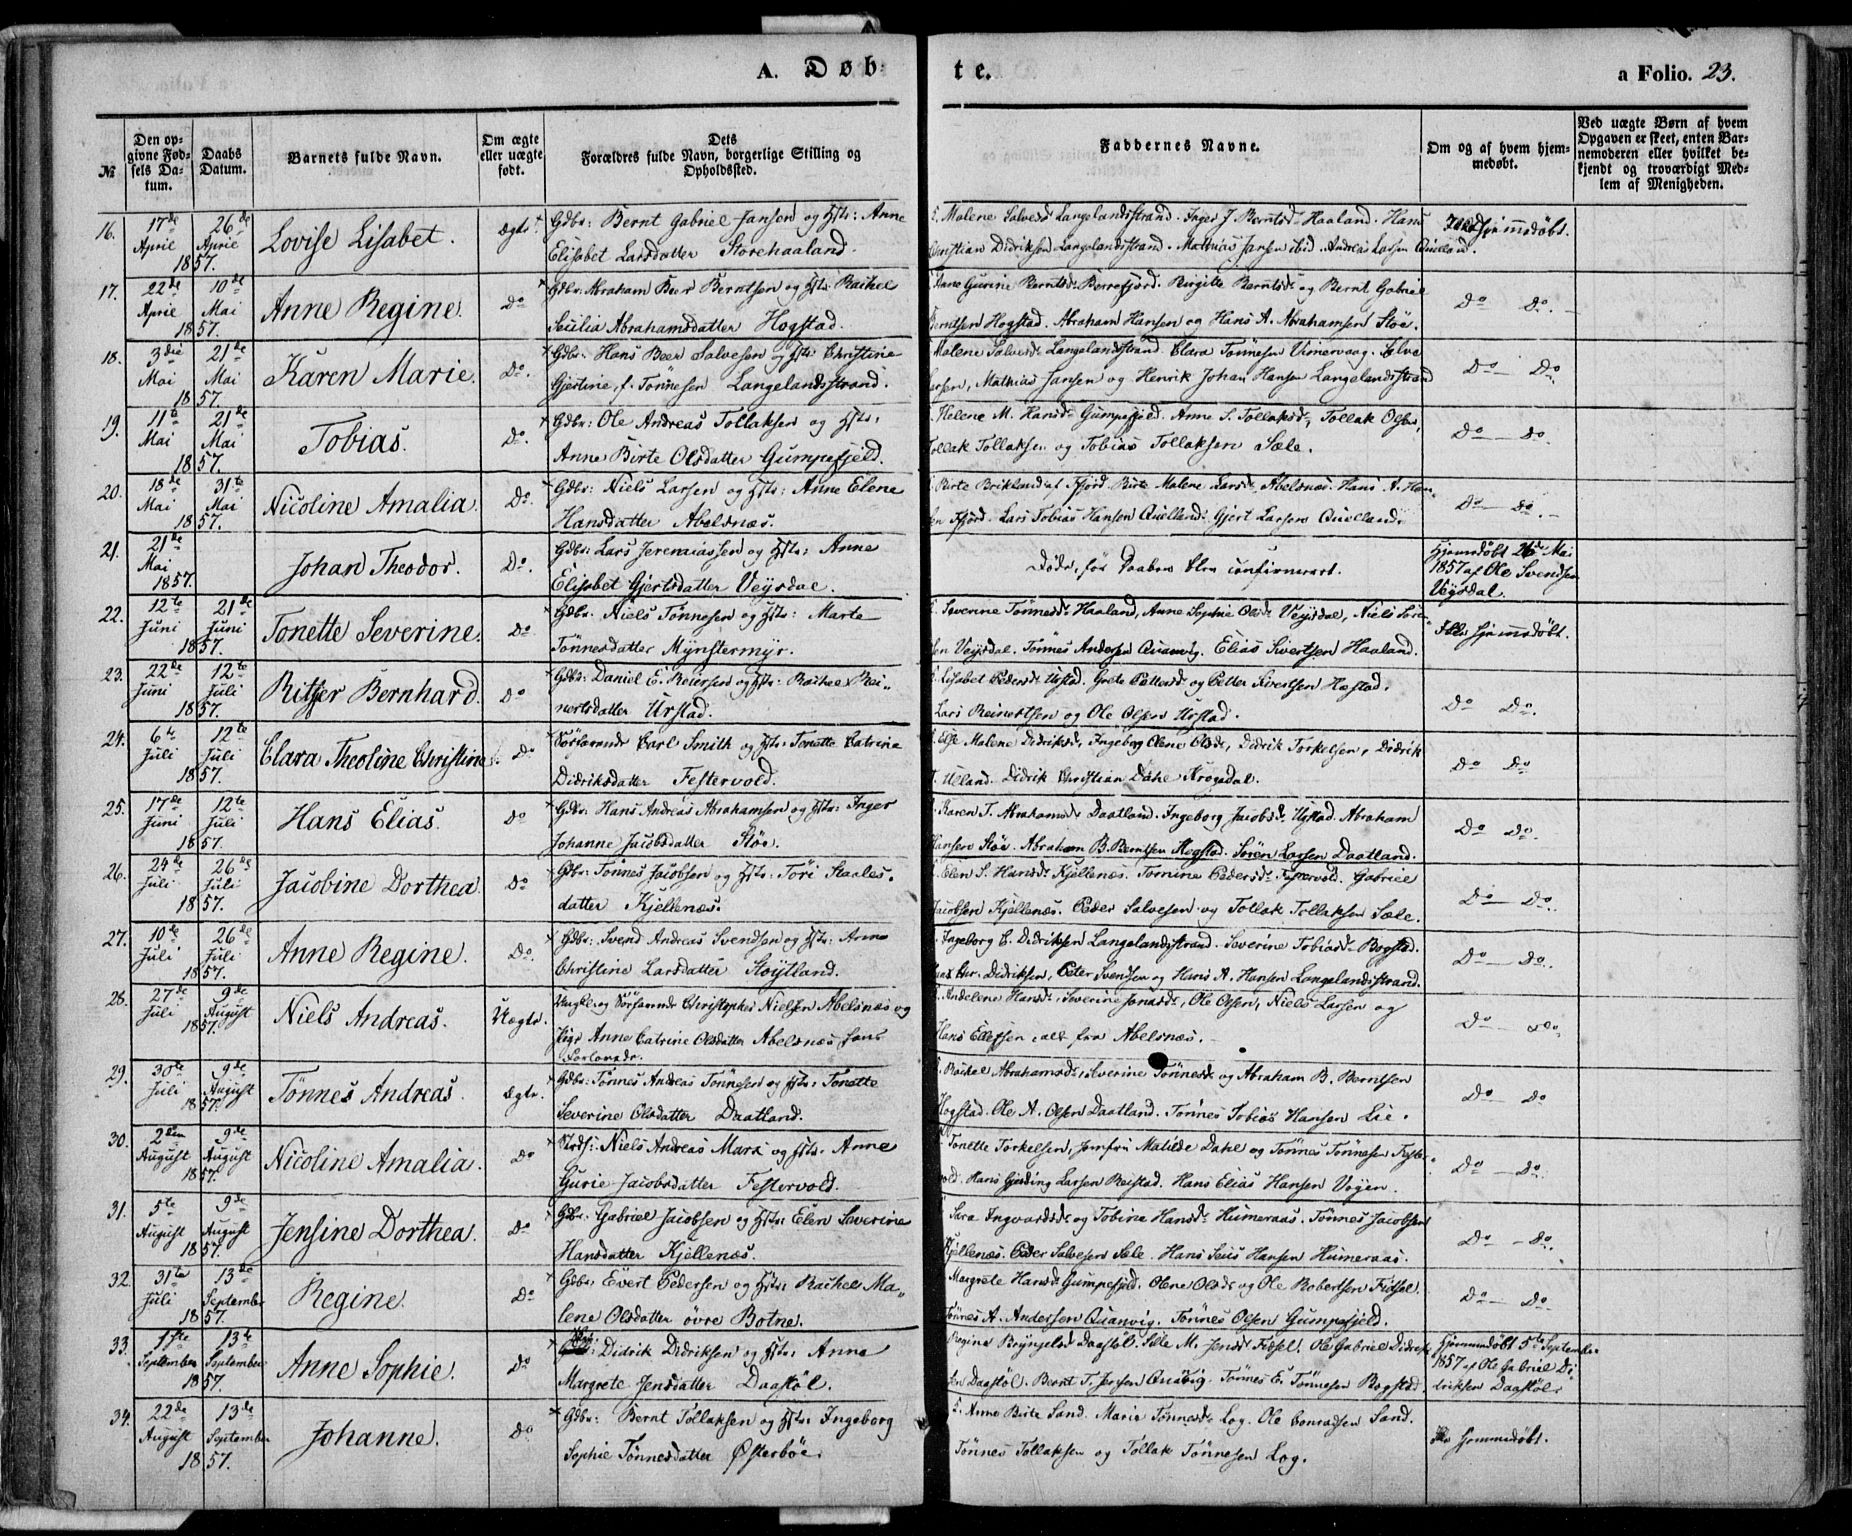 A. Døb- te. a Folio. 23.
№
Den op-
givne Fød-
sels Da-
tum.
Daabs
Datum.
Barnets fulde Navn.
Om ægte
eller uægte
født.
Dets
Forældres fulde Navn, borgerlige Stilling og
Opholdssted.
Faddernes Navne.
Om og af hvem hjem-
medøbt.
Ved uægte Børn af hvem
Opgaven er skeet, enten Bar-
nemoderen eller hvilket be-
kjendt og troværdigt Med-
lem af Menigheden.
16. 17de April 1857. 26de April Lovise Lisabet. Ægte. Gdbr: Bernt Gabriel Jansen og Hstr: Anne
Elisabet Larsdatter Storehaaland.
Malene Salvesd. Langelandsstrand. Inger J. Berntsd. Haaland. Hans
Christian Didriksen Langelandsstrand. Mathias Jansen ibid. Andreas Larsen Qvelland.
Ikke hjemmedøbt.
17. 22de April 1857. 10de Mai Anne Regine. Do Gdbr: Abraham Beer Berntsen og Hstr: Rachel
Secilia Abrahamsdatter Hogstad.
Ane Gurine Berntsd. Borrefjord. Birgite Berntsd. og Bernt Gabriel
Berntsen Hogstad. Abraham Hansen og Hans A. Abrahamsen Stöe.
Do Do.
18. 3die Mai 1857. 21de Mai Karen Marie. Do. Gdbr: Hans Beer Salvesen og Hstr: Christine
Gjertine, f. Tönnesen Langelandsstrand.
Malene Salvesd. Langelandsstrand. Clara Tönnesen Vimervaag. Salve
Larsen, Mathias Jansen og Henrik Johan Hansen Langelandsstrand
Do Do.
19. 11te Mai 1857. 21de Mai Tobias. Do. Gdbr: Ole Andreas Tollaksen og Hstr:
Anne Birte Olsdatter Gumpefjeld.
Helene M. Hansd. Gumpefjeld. Anne S. Tollaksd., Tollak Olsen,
Tollak Tollaksen og Tobias Tollaksen Sæle.
Do Do.
20. 18de Mai 1857. 31te Mai Nicoline Amalia. Do. Gdbr: Niels Larsen og Hstr: Anne Elene
Hansdatter Abelsnæs.
Birte Malene Larsd. Abelsnæs. Hans A. Han-
sen Fjord. Lars Tobias Hansen Qvelland. Gjert Larsen Qvelland.
Do Do.
21. 21de Mai 1857. Johan Theodor. Do. Gdbr: Lars Jeremiassen og Hstr: Anne
Elisabet Gjertsdatter Veisdal.
Döde, för Daaben blev confirmeret.
Hjemmedøbt 26de Mai
1857 af Ole Svendsen
Veisdal.
22. 12te Juni 1857. 21de Juni Tonette Severine. Do Gdbr: Niels Tönnesen og Hstr: Marte
Tönnesdatter Mynstermyr.
Severine Tönnesd. Haaland, Anne Sophie Olsd. Veisdal, Niels Sören-
sen Veisdal. Tönnes Andersen Qvanvig. Elias Sivertsen Haaland.
Ikke hjemmedøbt.
23. 22de Juni 1857. 12te Juli Bernhard. Do Gdbr: Daniel E. Reiersen og Hstr: Rachel Rei-
nertsdatter Urstad.
Lisabet Pedersd. Urstad. Grete Pettersd. og Petter Sivertsen Hæstad.
Lars Reinertsen og Ole Olsen Urstad.
Do Do.
24. 6te Juli 1857. 12te Juli Clara Theoline Christine. Do. Söfarende Carl Smith og Hstr: Tonette Catrine
Didriksdatter Festervold.
Else Malene Didriksd., Ingeborg Olene Olsd., Didrik Torkelsen, Didrik
T. Ueland. Didrik Christian Dahl Krogedal.
Do Do
25. 17de Juni 1857. 12te Juli Hans Elias. Do Gdbr: Hans Andreas Abrahamsen og Hstr: Inger
Johanne Jacobsdatter Stöe.
Karen T. Abrahamsd. Daatland. Ingeborg Jacobsd. Urstad. Abraham
Hansen Stöe. Abraham B. Berntsen Hogstad. Sören Larsen Daatland.
Do Do.
26. 24de Juli 1857. 26de Juli Jacobine Dorthea. Do Gdbr: Tönnes Jacobsen og Hstr: Tori Staales-
datter Kjellenæs.
Elen S. Hansd. Kjellenæs. Tomine Pedersd. Festervold. Gabriel
Jacobsen Kjellenæs. Peder Salvesen og Tollak Tollaksen Sæle.
Do Do.
27. 10de Juli 1857. 26de Juli Anne Regine. Do. Gdbr: Svend Andreas Svendsen og Hstr: Anne
Christine Larsdatter Stöytland.
Ingeborg E. Didriksen Langelandsstrand. Severine Tobiasd. Bogstad.
Hans Chr. Didriksen, Peter Svendsen og Hans A. Hansen Langelandsstrand.
Do Do.
28. 27de Juli 1857. 9de August Niels Andreas. Uægte. Ungkl. og Söfarende Christopher Nielsen Abelsnæs og
Pige Anne Catrine Olsdatter Abelsnæs hans
Forlovede.
Andelene Hansd., Severine Jonasd., Ole Olsen, Niels Larsen og
Hans Ellefsen, alle fra Abelsnæs.
Do Do.
29. 30te Juli 1857. 9de August Tönnes Andreas. Ægte. Gdbr: Tönnes Andreas Tönnesen og Hstr: Tonette
Severine Olsdatter Daatland.
Rachel Abrahamsd., Severine Tönnesd. og Abraham B. Berntsen
Hogstad. Ole A. Olsen Daatland. Tönnes Tobias Hansen Lie.
Do Do
30. 2den August 1857. 9de August Nicoline Amalia. Do Niels Andreas Marx og Hstr: Anne
Gurie Jacobsdatter Festervold.
Tonette Torkelsen, Jomfru Matilde Dahl og Tönnes Tönnesen Fester-
vold. Hans Gjerding Larsen Reistad. Hans Elias Hansen Vogen.
Do Do.
31. 5te August 1857. 9de August Jensine Dorthea. Do Gdbr: Gabriel Jacobsen og Hstr: Elen Severine
Hansdatter Kjellenæs.
Sara Ingvardsd. og Tobine Hansd. Humeraas. Tönnes Jacobsen
Kjellenæs. Peder Salvesen Sæle. Hans Hansen Humeraas.
Do Do.
32. 31te Juli 1857. 13de September Regine. Do Gdbr: Evert Pedersen og Hstr: Rachel Ma-
lene Olsdatter övre Botne.
Margrete Hansd. Gumpefjeld. Olene Olsd. og Ole Robertsen Fidsel.
Tönnes A. Andersen Qvanvig. Tönnes Olsen Gumpefjeld.
Do Do.
33. 1ste September 1857. 13de September Anne Sophie. Do Didrik Didriksen og Hstr: Anne
Margrete Jensdatter Daastöl.
Regine Daastöl. Sille M. Jensd. Fidsel. Ole Gabriel Didrik-
sen Daastöl. Bernt T. Jensen Qvavig. Tönnes E. Tönnesen Bogstad.
Hjemmedøbt 5te September
1857 af Ole Gabriel Di-
driksen Daastöl.
34. 22de August 1857. 13de September Johanne. Do. Gdbr: Bernt Tollaksen og Hstr: Ingeborg
Sophie Tönnesdatter Østerböe.
Anne Birte Sand. Marie Tönnesd. Log. Ole Conradsen Sand.
Tönnes Tollaksen og Tollak Tönnesen Log.
Ikke hjemmedøbt.